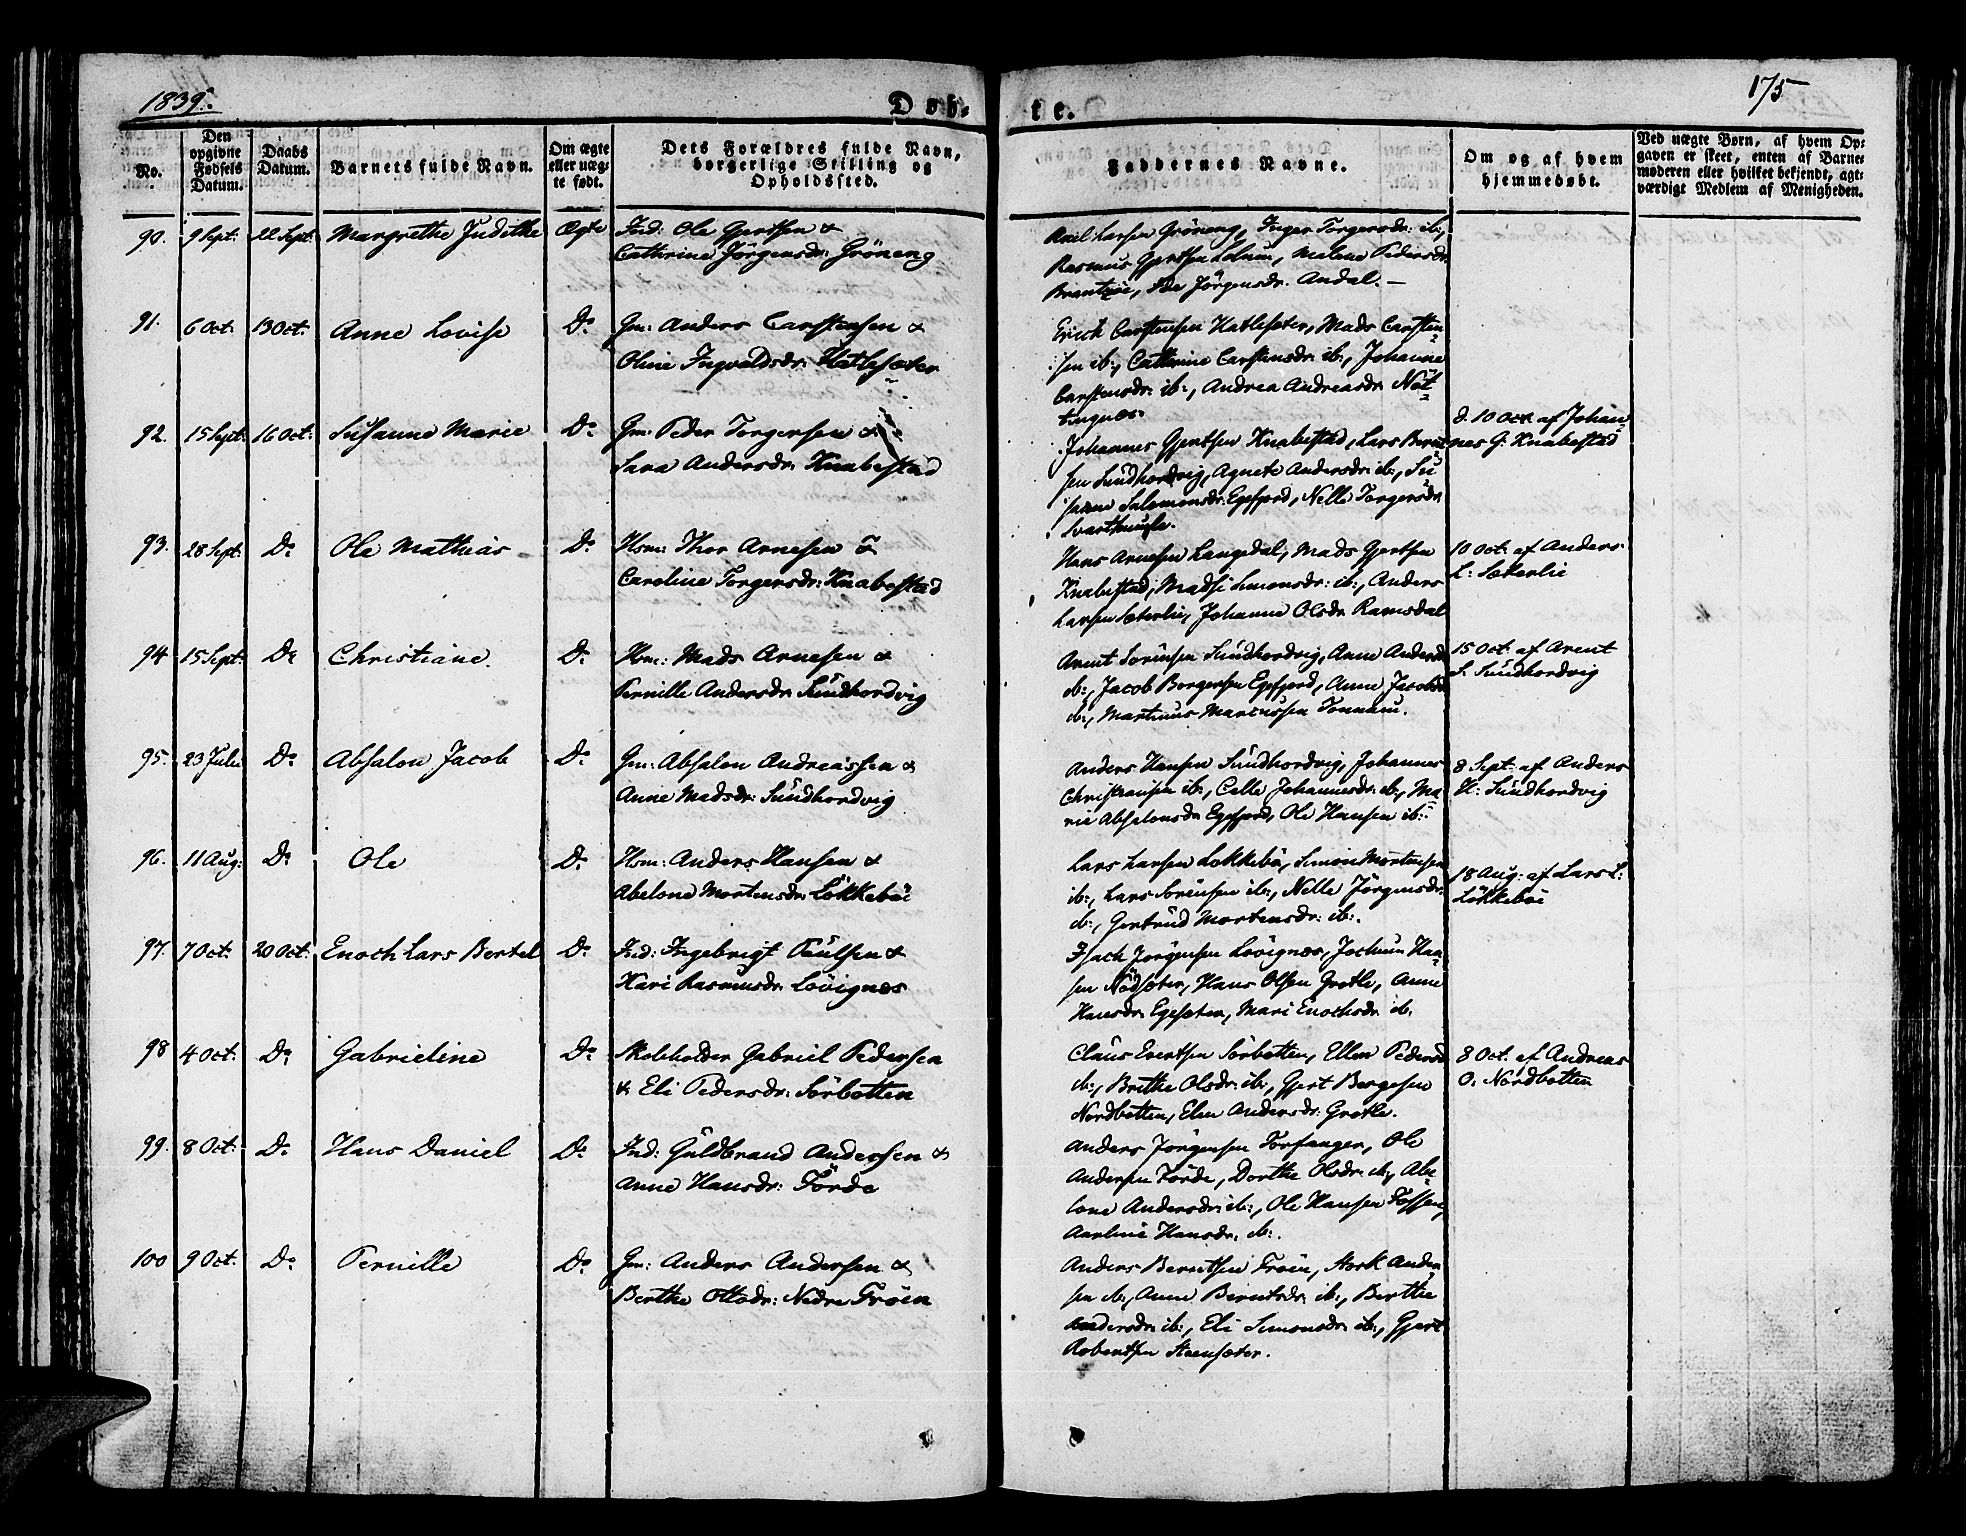 1839.
Døb-
te.
175
No.
Den opgivne Fødsels Datum.
Daabs Datum.
Barnets fulde Navn.
Om ægte eller uæg- te født.
Dets Forældres fulde Navn, borgerlige Stilling og Opholdssted.
Faddernes Navne.
Om og af hvem hjemmedøbt.
Ved uægte Børn, af hvem Op- gaven er skeet, enten af Barne- moderen eller hvilket bekjendt, agt- værdigt Medlem af Menigheden.
90. 9 Sept: 22 Sept: Margrethe Judithe Ægte Ind: Ole Gjertsen &
Cathrine Jörgensdr: Gröneng
Axel Larsen Gröneng, Inger Torgersdr: ib:,
Rasmus Gjertsen Solum, Malene Pedersdr.
Jörgensdr. Andal. –
91. 6 Oct: 13 Oct: Anne Lovise Do. Gm: Anders Carstensen &
Oline Ingvaldsdr: Hatlesæter
Erich Carstensen Hatlesæter, Mads Carsten-
sen ib:, Cathrine Carstensdr: ib:, Johanne
Carstensdr: ib:, Andrea Andreasdr. Nöt-
tingnæs.
92. 15 Sept: 16 Oct: Susanne Marie Do. Gm: Peder Torgersen &
Sara Andersdr: Knabestad
Johannes Gjertsen Knabestad, Lars Bernt-
sen Sundhordvig, Agnete Andersdr: ib:, Su-
sanne Salomonsdr: Egefjord, Nelle Torgersdr.
d. 10 Oct af Johan-
nes G: Knabestad
93. 28 Sept: Do. Ole Mathias Do. Hsm: Thor Arnesen &
Caroline Torgersdr: Knabestad
Hans Arnesen Langedal, Mads Gjertsen
Knabestad, Madsi Simonsdr: ib:, Anders
Larsen Sæterlie, Johanne Olsdr. Ramsdal
10 Oct: af Anders
L: Sæterlie
94 15 Sept: Do Christiane. Do. Hsm: Mads Arnesen &
Pernille Andersdr: Sundhordvig
Arent Sörensen Sundhordvig, Anne Andersdr.
ib:, Jacob Borgersen Egefjord, Anne Jacobsdr.
ib:, Martinus Marcussen
15 Oct: af Arent
S. Sundhordvig
95. 23 Juli Do. Absalon Jacob Do. Gm: Absalon Andreassen &
Anne Madsdr: Sundhordvig
Anders Hansen Sundhordvig, Johannes
Christiansen ib:, Celle Johannesdr: ib:, Ma-
rie Absalonsdr. Egefjord, Ole Hansen ib:
8 Sept: af Anders
H: Sundhordvig
96. 11 Aug: Do. Ole Do. Hsm: Anders Hansen &
Abelone Mortensdr: Lökkeböe
Lars Larsen Lökkebö, Simon Mortensen
ib:, Lars Sörensen ib:, Nelle Jörgensdr:
ib:, Gertrud Mortensdr: ib:.
18 Aug: af Lars L:
Lökkeböe
97. 7 Oct: 20 Oct: Enoch Lars Bertel Do. Ind: Ingebrigt Paulsen &
Kari Rasmusdr. Lövignæs
Isach Jörgensen Lövignæs, Jochum Han-
sen Nödsæter, Hans Olsen Grotle, Anne
Hansdr. Egesæter, Mari Enochsdr. ib.
98 4 Oct: Do. Gabrieline Do. Skoleholder Gabriel Pedersen
& Eli Pedersdr: Sörbotten
Claus Evertsen Sörbotten, Ellen Pedersdr.
ib:, Brithe Olsdr: ib:, Gjert Børgesen
Nordbotten, Elen Andersdr: Grotle.
8 Oct: af Andreas
O. Nordbotten
99. 8 Oct: Do. Hans Daniel Do. Ind: Guldbrand Andersen &
Anne Hansdr: Förde
Anders Jörgensen Torfanger, Ole
Andersen Förde, Dorthe Olsdr: ib:, Abe-
lone Andersdr: ib:, Ole Hansen Fossen,
Hansdr: ib:.
100 9 Oct: Do. Pernille Do. Gm: Anders Andersen &
Berthe Ottosdr: Nedre Fröen
Anders Berntsen Fröen, Anders-
sen ib:, Anne Berntsdr: ib:, Berthe
Andersdr: ib:, Eli Simonsdr: ib:, Gjert
Robertsen Steensæter.